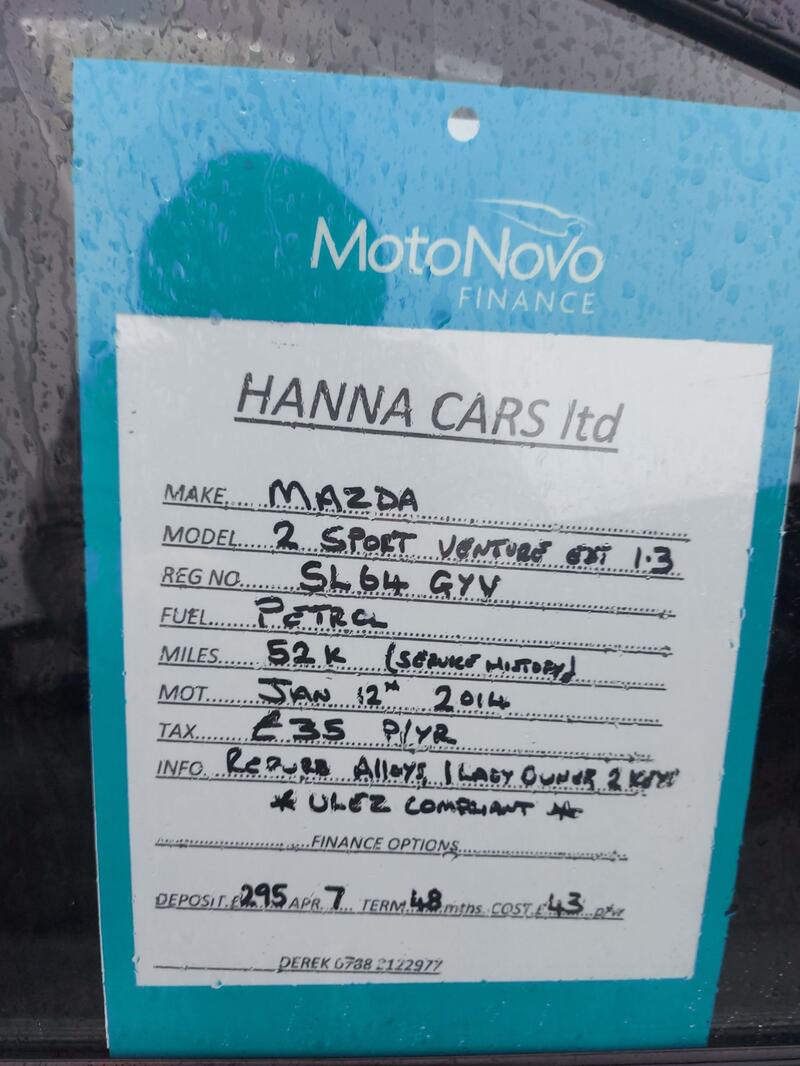 MotoNovo
FINANCE
HANNA CARS ltd
MAKE.... MAZDA
MODEL.. 2 SPORT VENTURE EDT 1.3
REG NO...... SL64 GYV
FUEL.... PETROL
MILES..... 52K (SERVICE HISTORY)
MOT...... JAN 12TH 2014
TAX...... £35 P/YR
INFO. REFURB Alloys, 1 LADY OWNER 2 KEYS
* ULEZ COMPLIANT *
FINANCE OPTIONS
DEPOSIT.£295 APR.7... TERM.48 mths. COST.£43... p/w
DEREK 0788 2122977